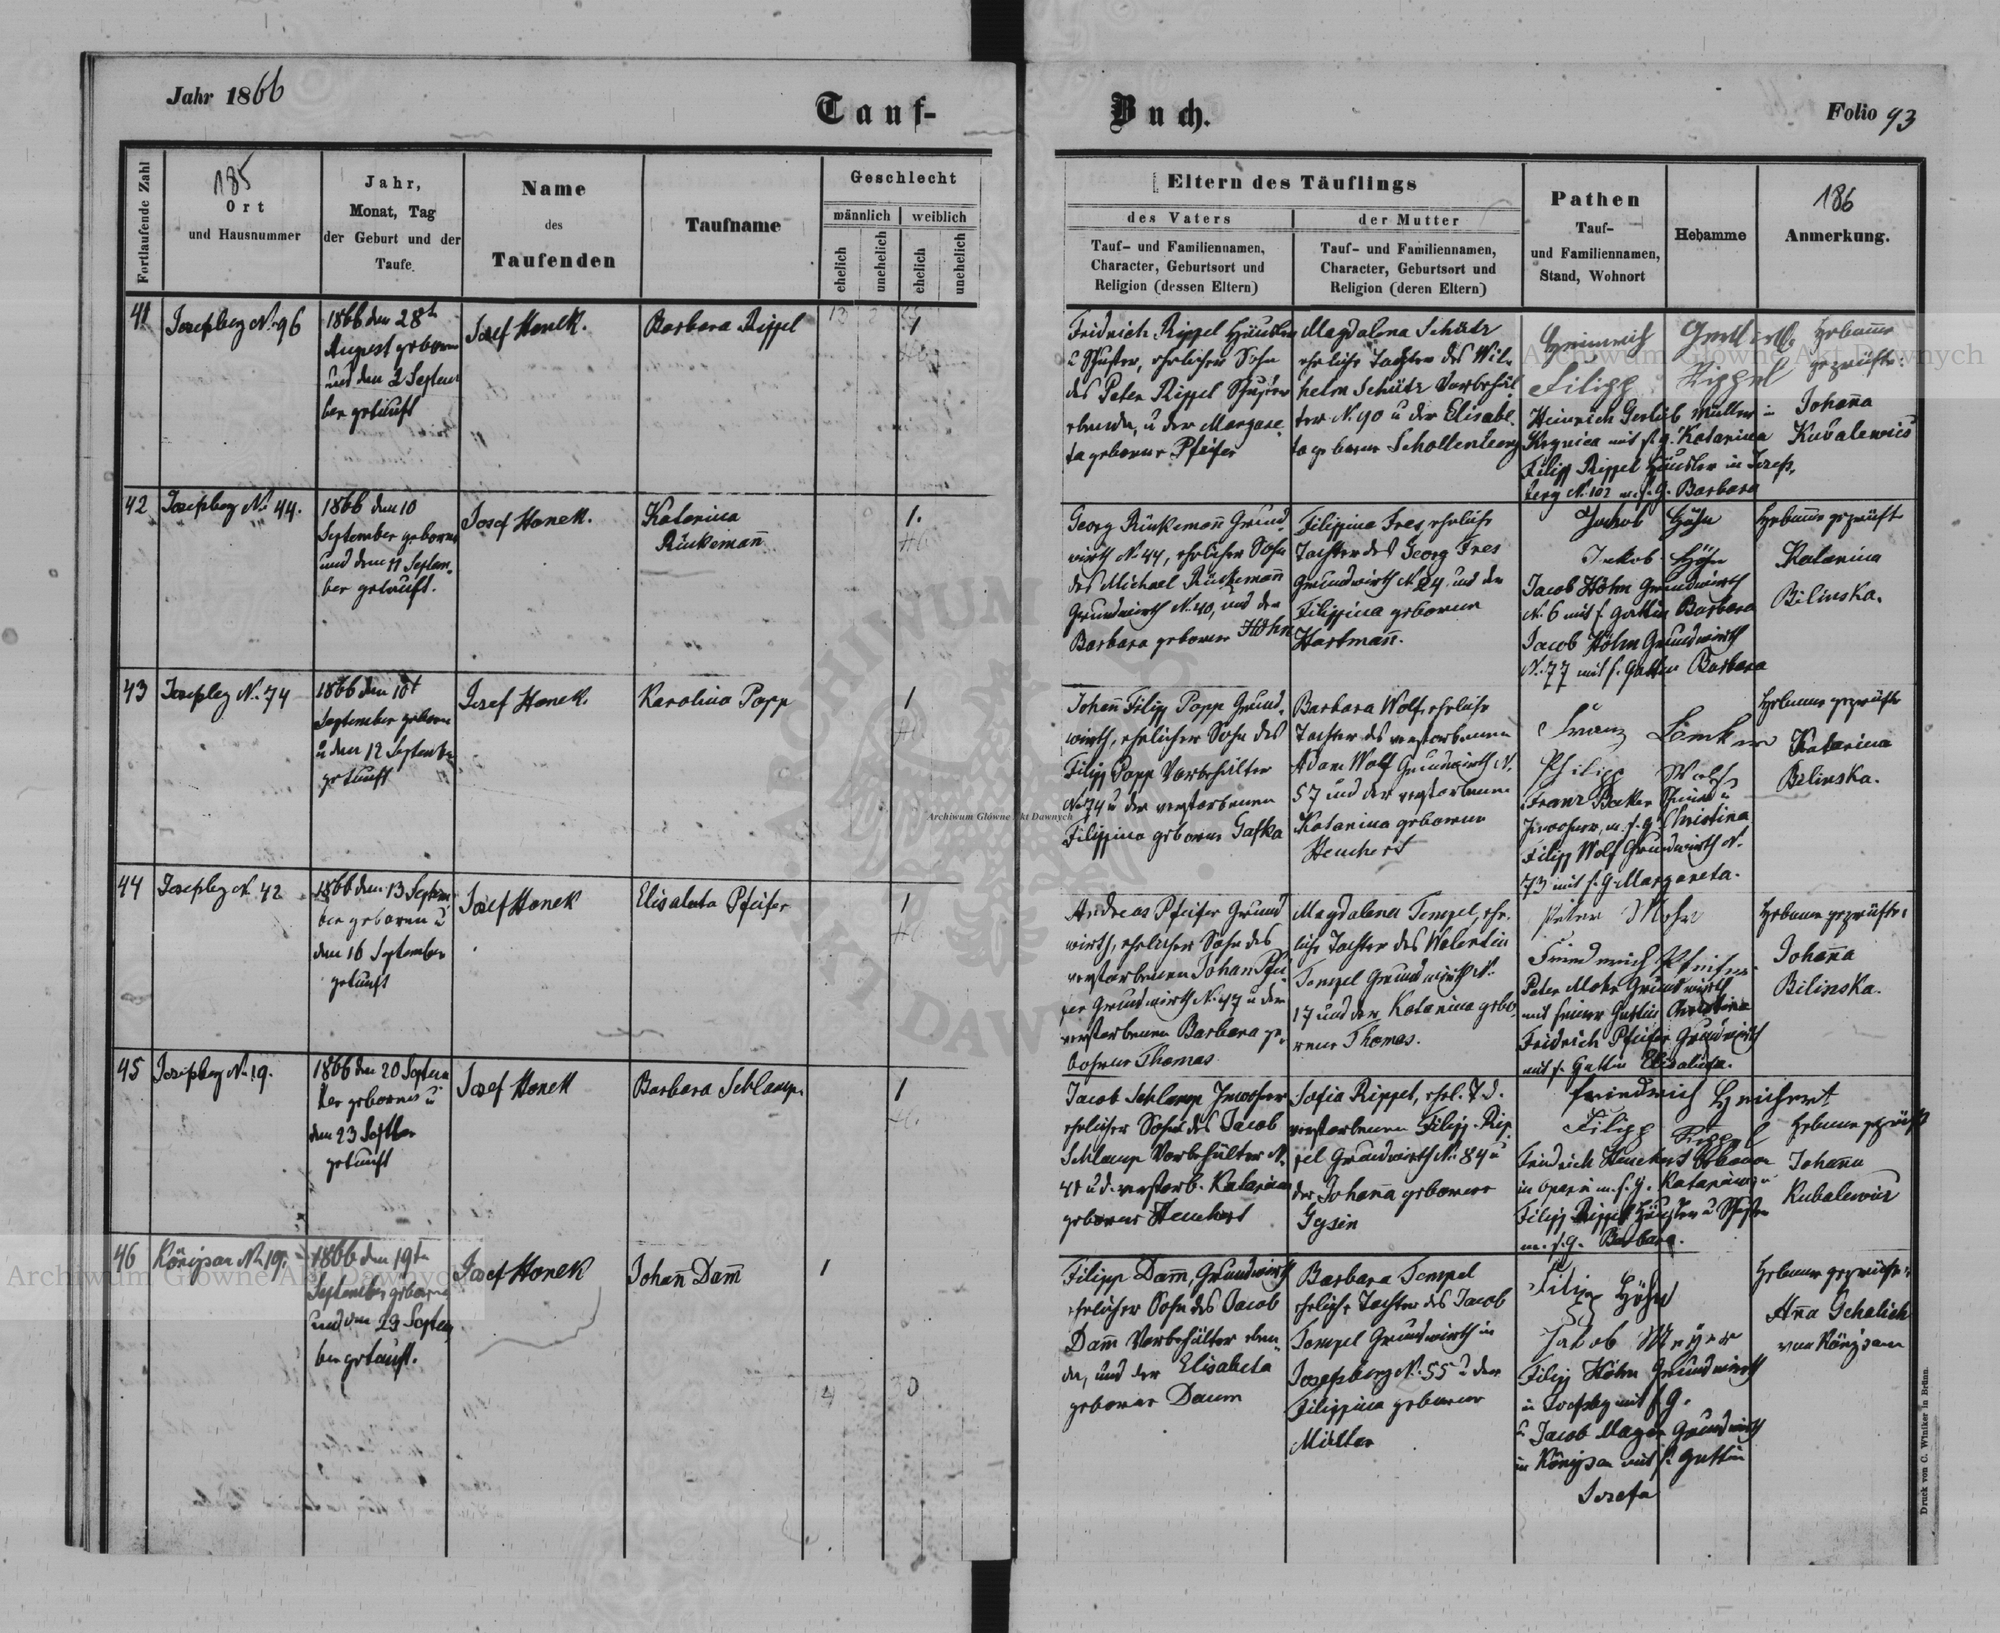 Jahr 1866
Tauf-
Buch.
Folio 93
Fortlaufende Zahl
185
Ort
und Hausnummer
Jahr,
Monat, Tag
der Geburt und der
Taufe.
Name
des
Taufenden
Taufname
Geschlecht
männlich
weiblich
ehelich
unehelich
ehelich
unehelich
Eltern des Täuflings
des Vaters
Tauf- und Familiennamen,
Character, Geburtsort und
Religion (dessen Eltern)
der Mutter
Tauf- und Familiennamen,
Character, Geburtsort und
Religion (deren Eltern)
Pathen
Tauf-
und Familiennamen,
Stand, Wohnort
Hebamme
186
Anmerkung.
41
Josefsberg N. 96
1866 den 28t
August geboren
und den 2 Septem
ber getauft
Josef Honek.
Barbara Rippel
1
Fridrich Rippel Häusler
u Schuster, ehelicher Sohn
des Peter Rippel Schuster
ebenda, u der Margare
ta geborne Pfeifer
Magdalena Schütz
eheliche Tochter des Wil
helm Schütz Vorbehäl
ter N. 90 u der Elisabe
ta geborne Schollenberg
Heinrich
Filipp Rippel
Heinrich Gerlieb Müller in
mit s. g. Katarina
Filipp Rippel Häusler in Josefs
berg N. 102 m. s. g. Barbara
Hebamme
geprüfte.
Johanna
42
Josefsberg N. 44.
1866 den 10
September geboren
und den 11 Septem
ber getauft.
Josef Honek.
Katarina
Rückemann
1.
Georg Rückemann Grund
wirth N. 44, ehelicher Sohn
des Michael Rückemann
Grundwirth N. 40, und der
Barbara geborene Höhn
Filippina Fres, eheliche
Tochter des Georg Fres
Grundwirth N. 24 und der
Filippina geborene
Hartmann.
Jakob Höhn
Jakob Höhn
Jacob Höhn Grundwirth
N. 6 mit s. Gattin Barbara
Jacob Höhn Grundwirth
N. 77 mit s. Gattin Barbara
Hebamme geprüft
Katarina
Bilinska.
43
Josefsberg N. 74
1866 den 10t
September geboren
u den 12 September
getauft
Josef Honek.
Karolina Popp
1
Johann Filipp Popp Grund
wirth, ehelicher Sohn des
Filipp Popp Vorbehälter
N. 74 u der verstorbenen
Filippina geborne Gafka
Barbara Wolf, eheliche
Tochter des verstorbenen
Adam Wolf Grundwirth N.
57 und der verstorbenen
Katarina geborene
Heuchert
Franz
Philipp Wolf
Franz Beker u
m. s. g. Christina
Filipp Wolf Grundwirth N.
73 mit s. g. Margareta.
Hebamme geprüfte
Katarina
Bilinska.
44
Josefsberg N. 42
1866 den 13 Septem
ber geboren u
den 16 September
getauft
Josef Honek
Elisabeta Pfeifer
1
Andreas Pfeifer Grund
wirth, ehelicher Sohn des
verstorbenen Johan Pfei
fer Grundwirth N. 47 u der
verstorbenen Barbara ge
borene Thomas
Magdalena Tempel, ehe
liche Tochter des Walentin
Tempel Grundwirth N.
17 und der Katarina gebo
rene Thomas.
Peter Mohr
Friedrich Pfeifer
Peter Mohr Grundwirth
mit seiner Gattin Christina
Fridrich Pfeifer Grundwirth
mit s. Gattin Elisabeta.
Hebamme geprüfte:
Johanna
Bilinska.
45
Josefsberg N. 19.
1866 den 20 Septem
ber geboren u
den 23 Septber
getauft
Josef Honek
Barbara Schlamp.
1
Jacob Schlamp Inwohner
ehelicher Sohn des Jacob
Schlamp Vorbehälter N.
41 u d. verstorb. Katarina
geborne Heuchert
Sofia Rippel, ehel. T. d.
verstorbenen Filipp Rip
pel Grundwirth N. 84 u
der Johanna geborene
Gysin
Friedrich Heichert
Filipp Rippel
Fridrich Heuchert
in m. s. g. Katarina u
Filipp Rippel Häusler u Schuster
m. s. g. Barbara.
Hebamme geprüft
Johanna
46
Königsau N. 19.
1866 den 19ten
September geboren
und den 23 Septem
ber getauft.
Josef Honek
Johann Damm
1
Filipp Damm, Grundwirth
ehelicher Sohn des Jacob
Damm Vorbehälter eben
da, und der Elisabeta
geborne Daum
Barbara Tempel
eheliche Tochter des Jacob
Tempel Grundwirth in
Josefsberg N. 55 u der
Filippina geborene
Müller
Filipp Höhn
Jakob Meyer
Filipp Höhn Grundwirth
in Josfsbg mit s. g.
u Jacob Mayer Grundwirth
in Königsau mit s. Gattin
Josefa
Hebamme geprüfte:
Anna Schalich
von Königsau
4
Druck von C. Winiker in Brünn.
Archiwum Główne Akt Dawnych
Archiwum Główne Akt Dawnych
Archiwum Główne Akt Dawnych
ARCHIWUM
AKT DAWNYCH